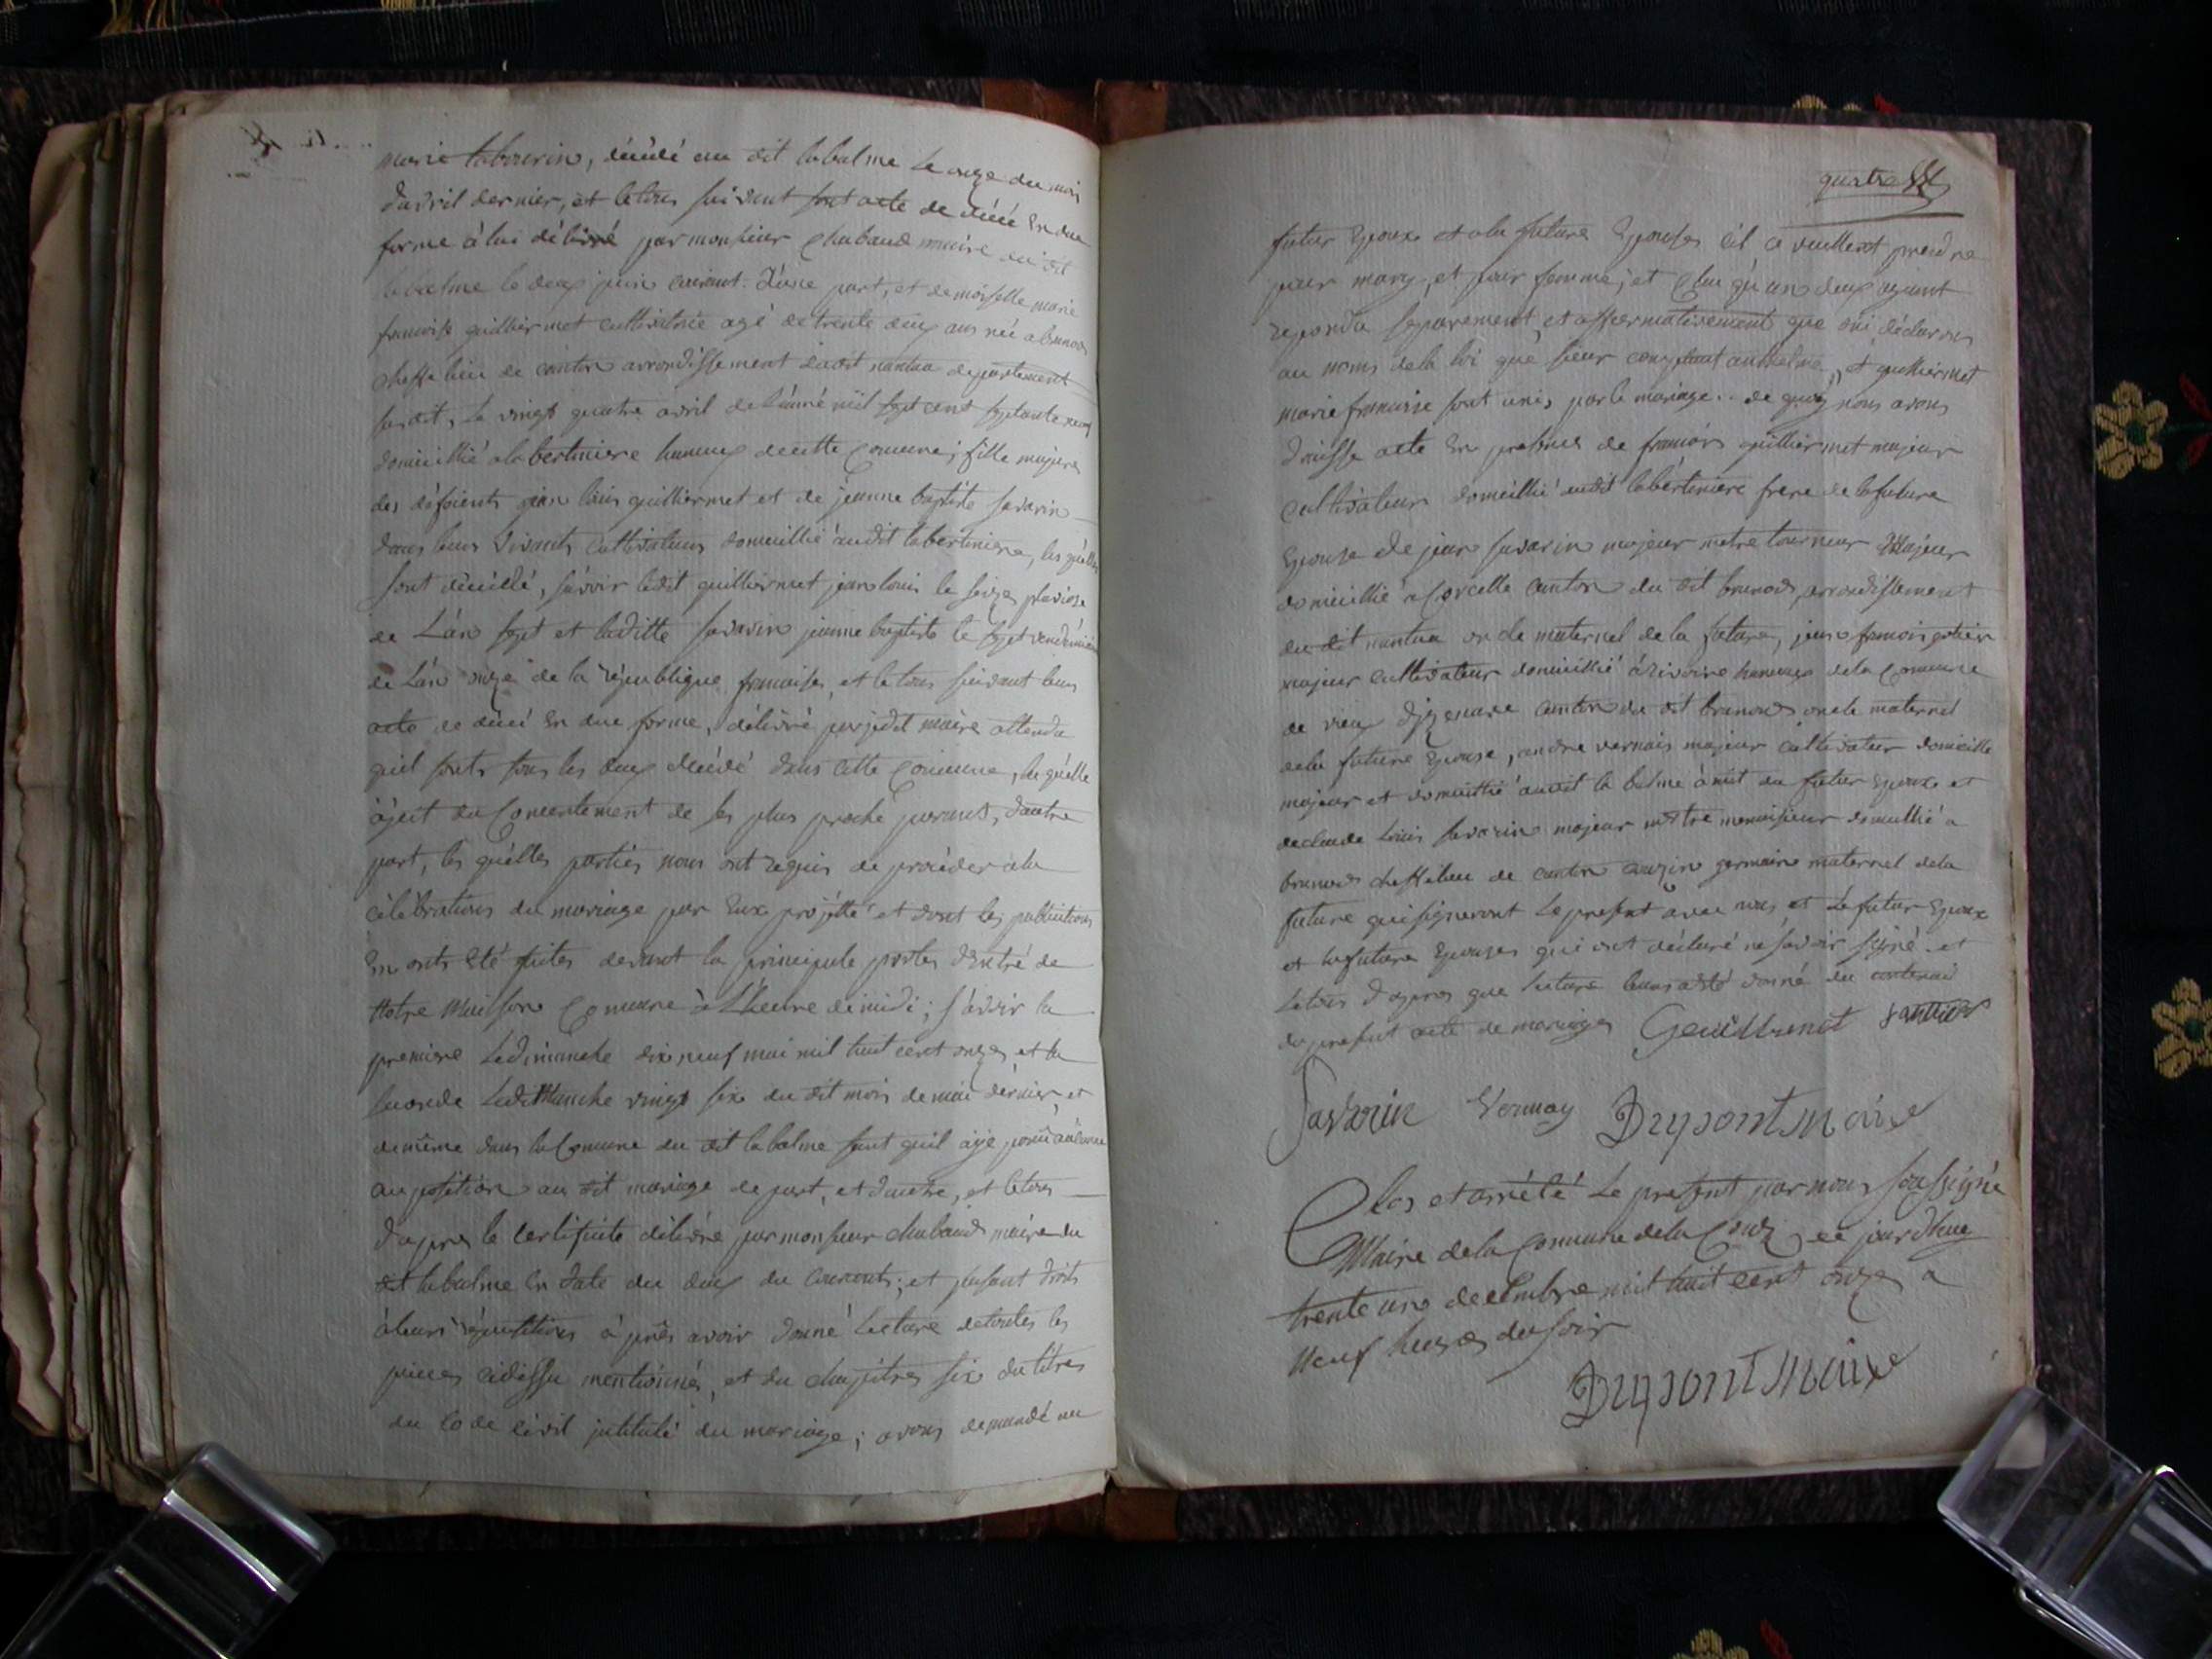 marie tabourin, décédé au dit labalme le onze du mois
d'avril dernier, et letous suivant sont acte de décée En due
forme à lui délivré par monsieur Chabaud maire du dit
labalme le deux juin courant. D'une part, et demoiselle marie
francoise guilliermet cultivatrice agé de trente deux ans née a brenod
cheffe lieu de canton arrondissement dudit nantua departement
susdit, le vingt quatre avril de l'année mil sept cent septante neuf
domicillié a labertiniere hameux decette Comune; fille majeure
des défoients jean louis guilliermet et de jeanne baptiste savarin
dans leurs vivants cultivateurs domicillié audit labertiniere, les quelles
sont décédé, sávoir ledit guilliermet jean louis le seize pluviose
de L'án sept et laditte savarin jeanne baptiste le sept vendémiaire
de L'án onze de la république francaise, et letous suivant leurs
acte de décé en due forme, délivré par jedit maire attendu
quil sonts tous les deux décédé dans cette Comune, la quélle
àjeit du Consentement de ses plus proche parents, d'autre
part, les quélles parties nous ont requis de procéder à la
célébrations du mariage par Eux projetté et dont les publications
En onts été faites devant la principale portes d'entré de
Notre Maison Comune à L'heure de midi; s'avoir la
premiere Ledimanche dix neuf mai mil huit cent onze, et la
seconde Ledimanche vingt six du dit mois de mai dernier, et
demême dans la Comune du dit labalme sant quil àÿe
oupósition au dit mariage de part, et d'autre, et letous
d'apres le certificate délivré par monsieur chabaud maire du
dit labalme En date du deux du courant; et faisant droit
à leurs réquisitions à près avoir donné lecture detoutes les
pieces cidessu mentionnés, et du chapitres six du titres
du code civil intitulé du mariage; avons demandé au
quatre
futur Epoux et ala future Epouses s'il ce veullent prendre
pour mary, et pour femme; et Chaqu'un deux ayant
repondu séparement, et affermativement que oüi, déclarons
au noms dela loi que sieur anthelme, et guilliermet
marie francoise sont unis par le mariage. de quoy nous avons
draisse acte En presence de francois guilliermet majeur
cultivateur domicillié audit labértiniere frere de lafuture
Epouse de jean savarin majeur metre tourneur Majeur
domicillié a Corcelle canton du dit brenod, arrondissement
du dit nantua oncle maternel de la future, jean francois
majeur cultivateur domicillié à rivoire hameux dela Comune
de vieu Djzenave canton du dit brenod oncle maternel
dela future Epouse, andre vernais majeur cultivateur domicille
majeur et domicillié audit la balme àmit du futur Epoux et
declaude Louis savarin majeur métre menuisieur domicillié a
brenod cheffelieu de canton couzin germain maternel dela
future qui signeront le present avec nous et le futur Epoux
et lafuture Epouses qui ont déclaré ne savoir signé. et
letous d'apres que lecture leurs a été donné du contenu
du present acte de mariages Gguillermet
Savarin Vernay Dupont Maire
Clos et arrêté Le present par nous soussigné
Maire dela Comune dela ce jourdhuy
trente une decembre mil huit cent onze a
Neuf heures du soir
Dupont Maire